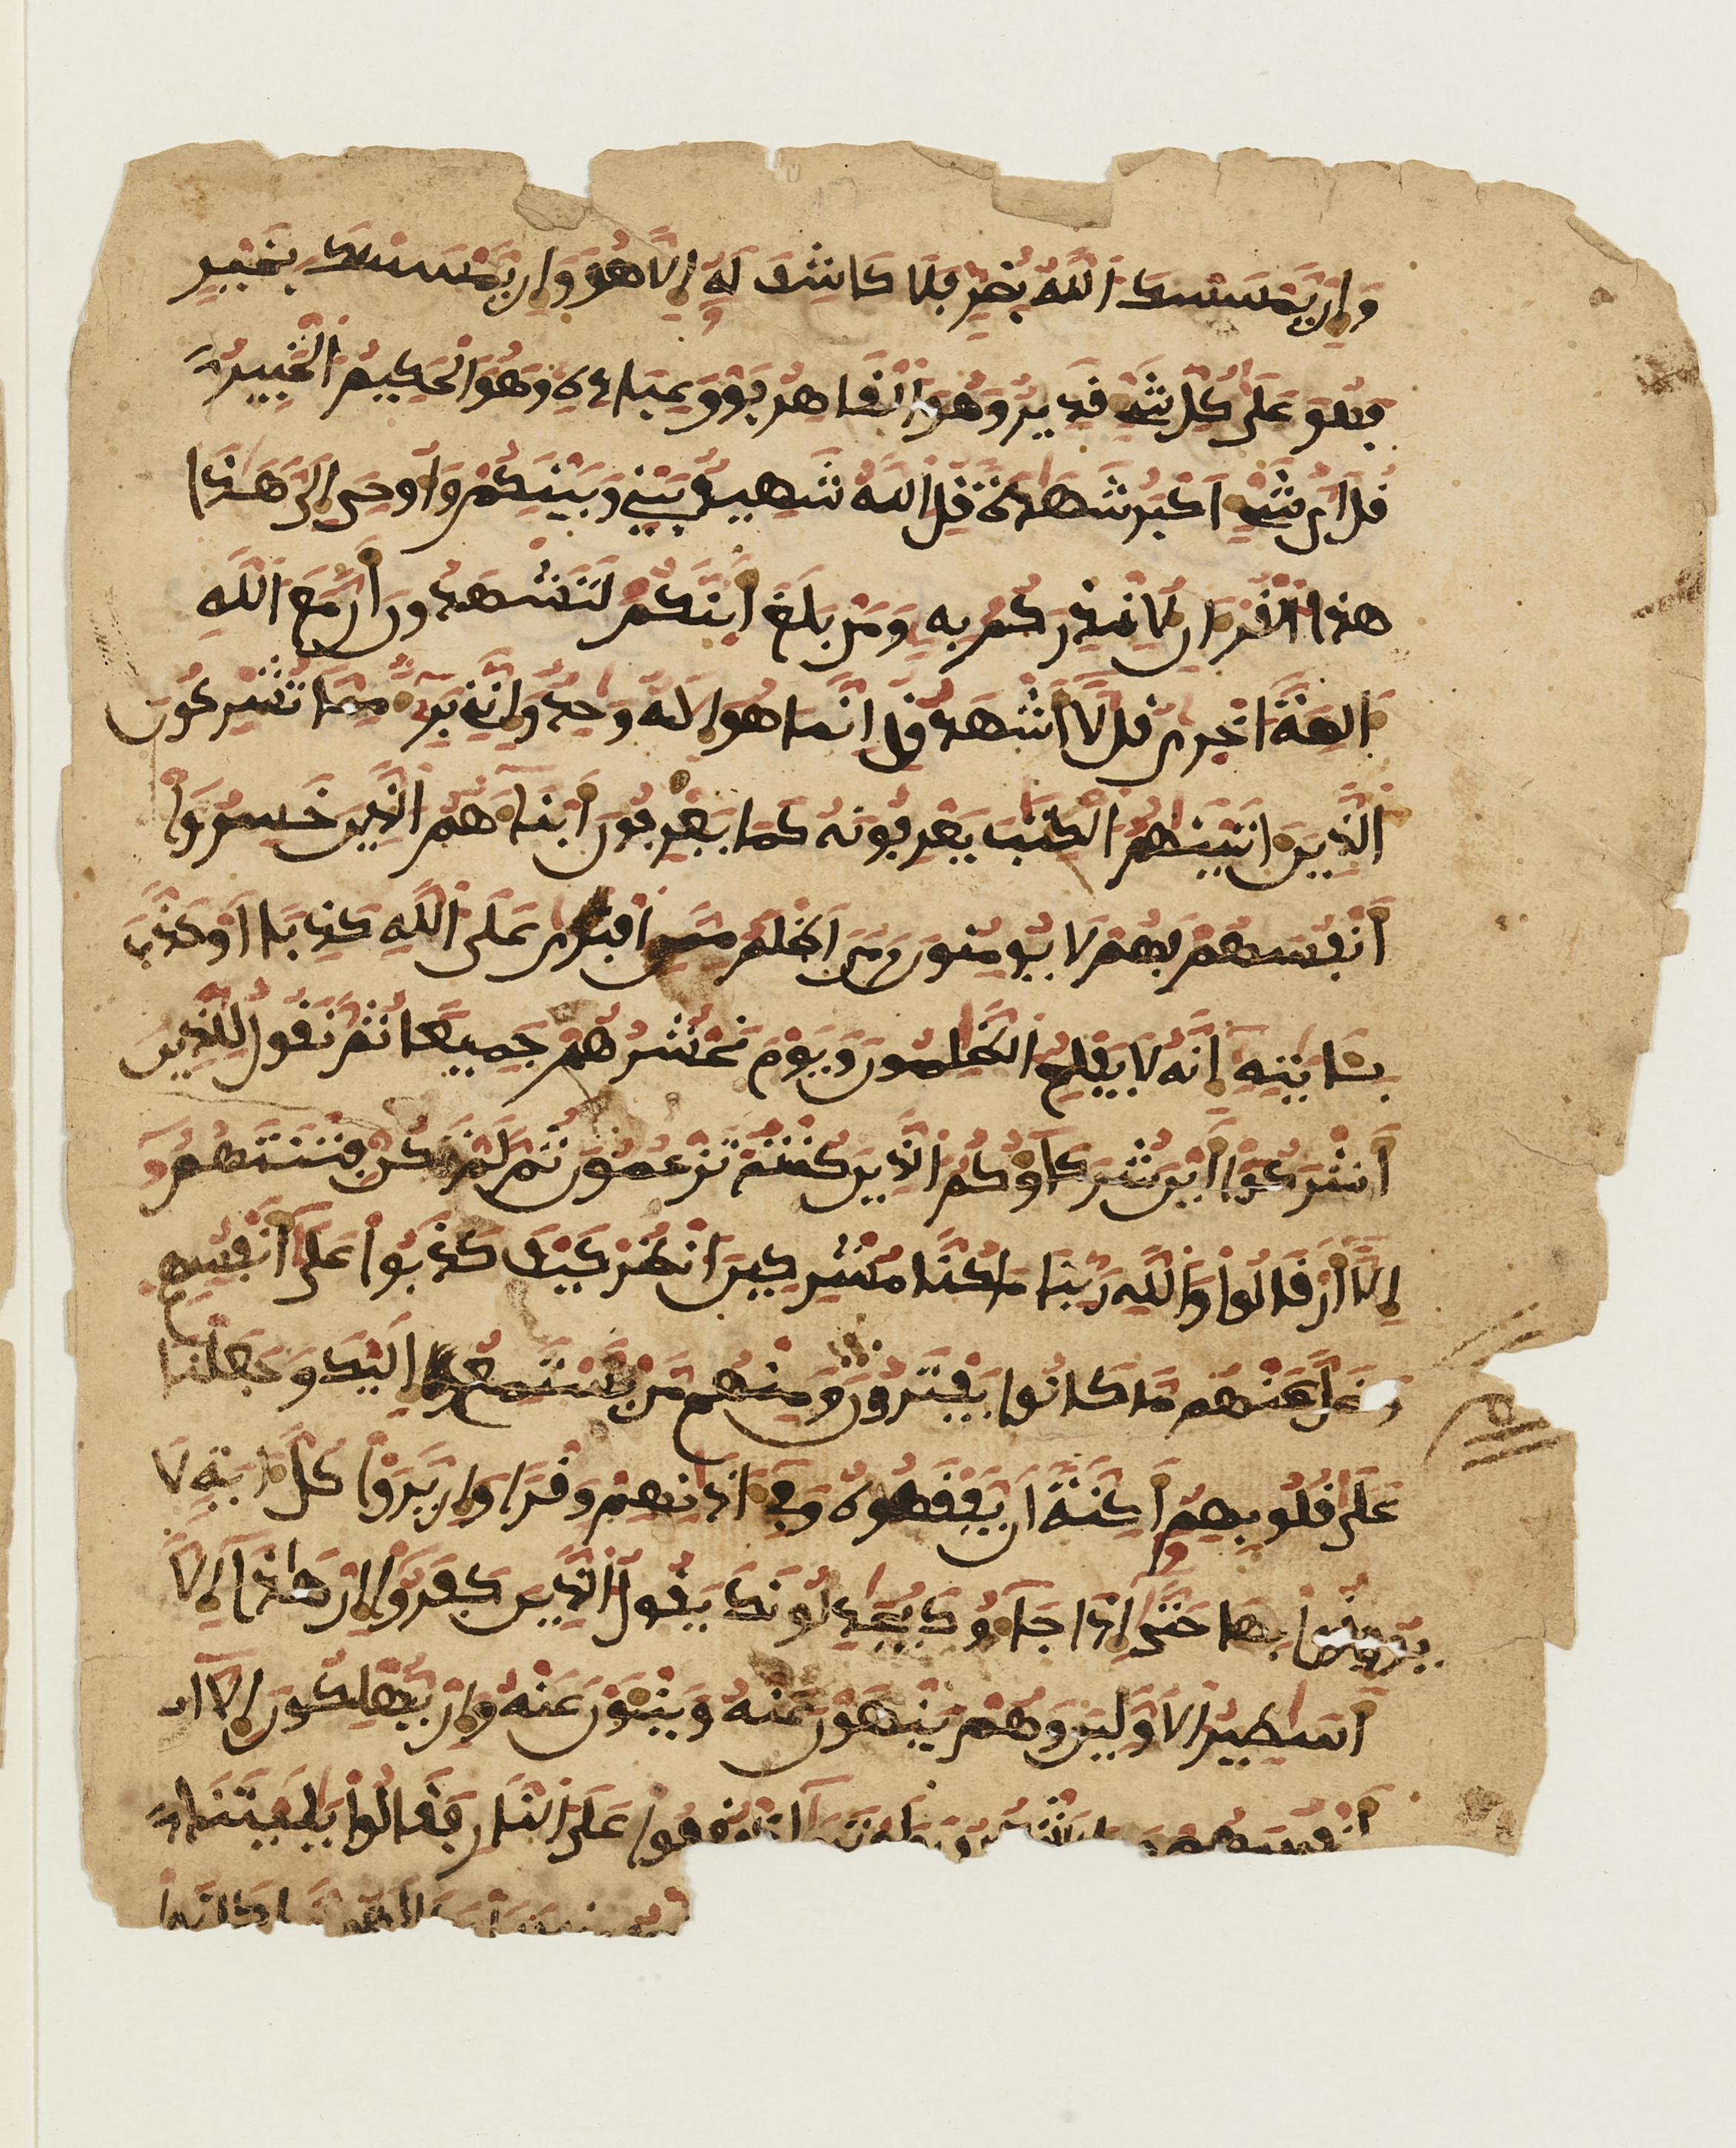 وإن يمسسك الله بضر فلا كاشف له إلا هو وإن يمسسك بخير
فهو على كل شيء قدير وهو القاهر فوق عباده وهو الحكيم الخبير
قل أي شيء أكبر شهدة قل الله شهيد بيني وبينكم وأوحي إلي هذا
هذا القرءان لأنذركم به ومن بلغ أئنكم لتشهدون أن مع الله
ءالهة أخرى قل لا أشهد قل إنما هو إله وحد وإنني بريء مما تشركون
الذين ءاتينهم الكتب يعرفونه كما يعرفون أبناءهم الذين خسروا
أنفسهم فهم لا يومنون ومن أظلم ممن افترى على الله كذبا أو كذب
بئايته إنه لا يفلح الظلمون ويوم نحشرهم جميعا ثم نقول للذين
أشركوا أين شركاؤكم الذين كنتم تزعمون ثم لم تكن فتنتهم
إلا أن قالوا والله ربنا ما كنا مشركين انظر كيف كذبوا على أنفسهم
وضل عنهم ما كانوا يفترون ومنهم من يستمع إليك وجعلنا
على قلوبهم أكنة أن يفقهوه وفي ءاذانهم وقرا وإن يروا كل ءاية لا
يومنوا بها حتى إذا جاءوك يجدلونك يقول الذين كفروا إن هاذا إلا
أسطير الأولين وهم ينهون عنه وينئون عنه وإن يهلكون إلا
أنفسهم وما يشعرون ولو ترى إذ وقفوا على النار فقالوا يليتنا